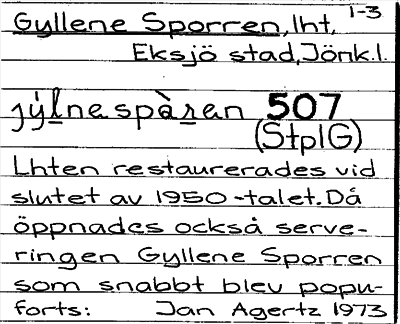 Gyllene Sporren, lht, 1-3
Eksjö stad, Jönk.l.
jýlnespὰren 507
(StplG)
Lhten restaurerades vid
slutet av 1950-talet. Då
öppnades också serve-
ringen Gyllene Sporren
som snabbt blev popu-
forts: Jan Agertz 1973